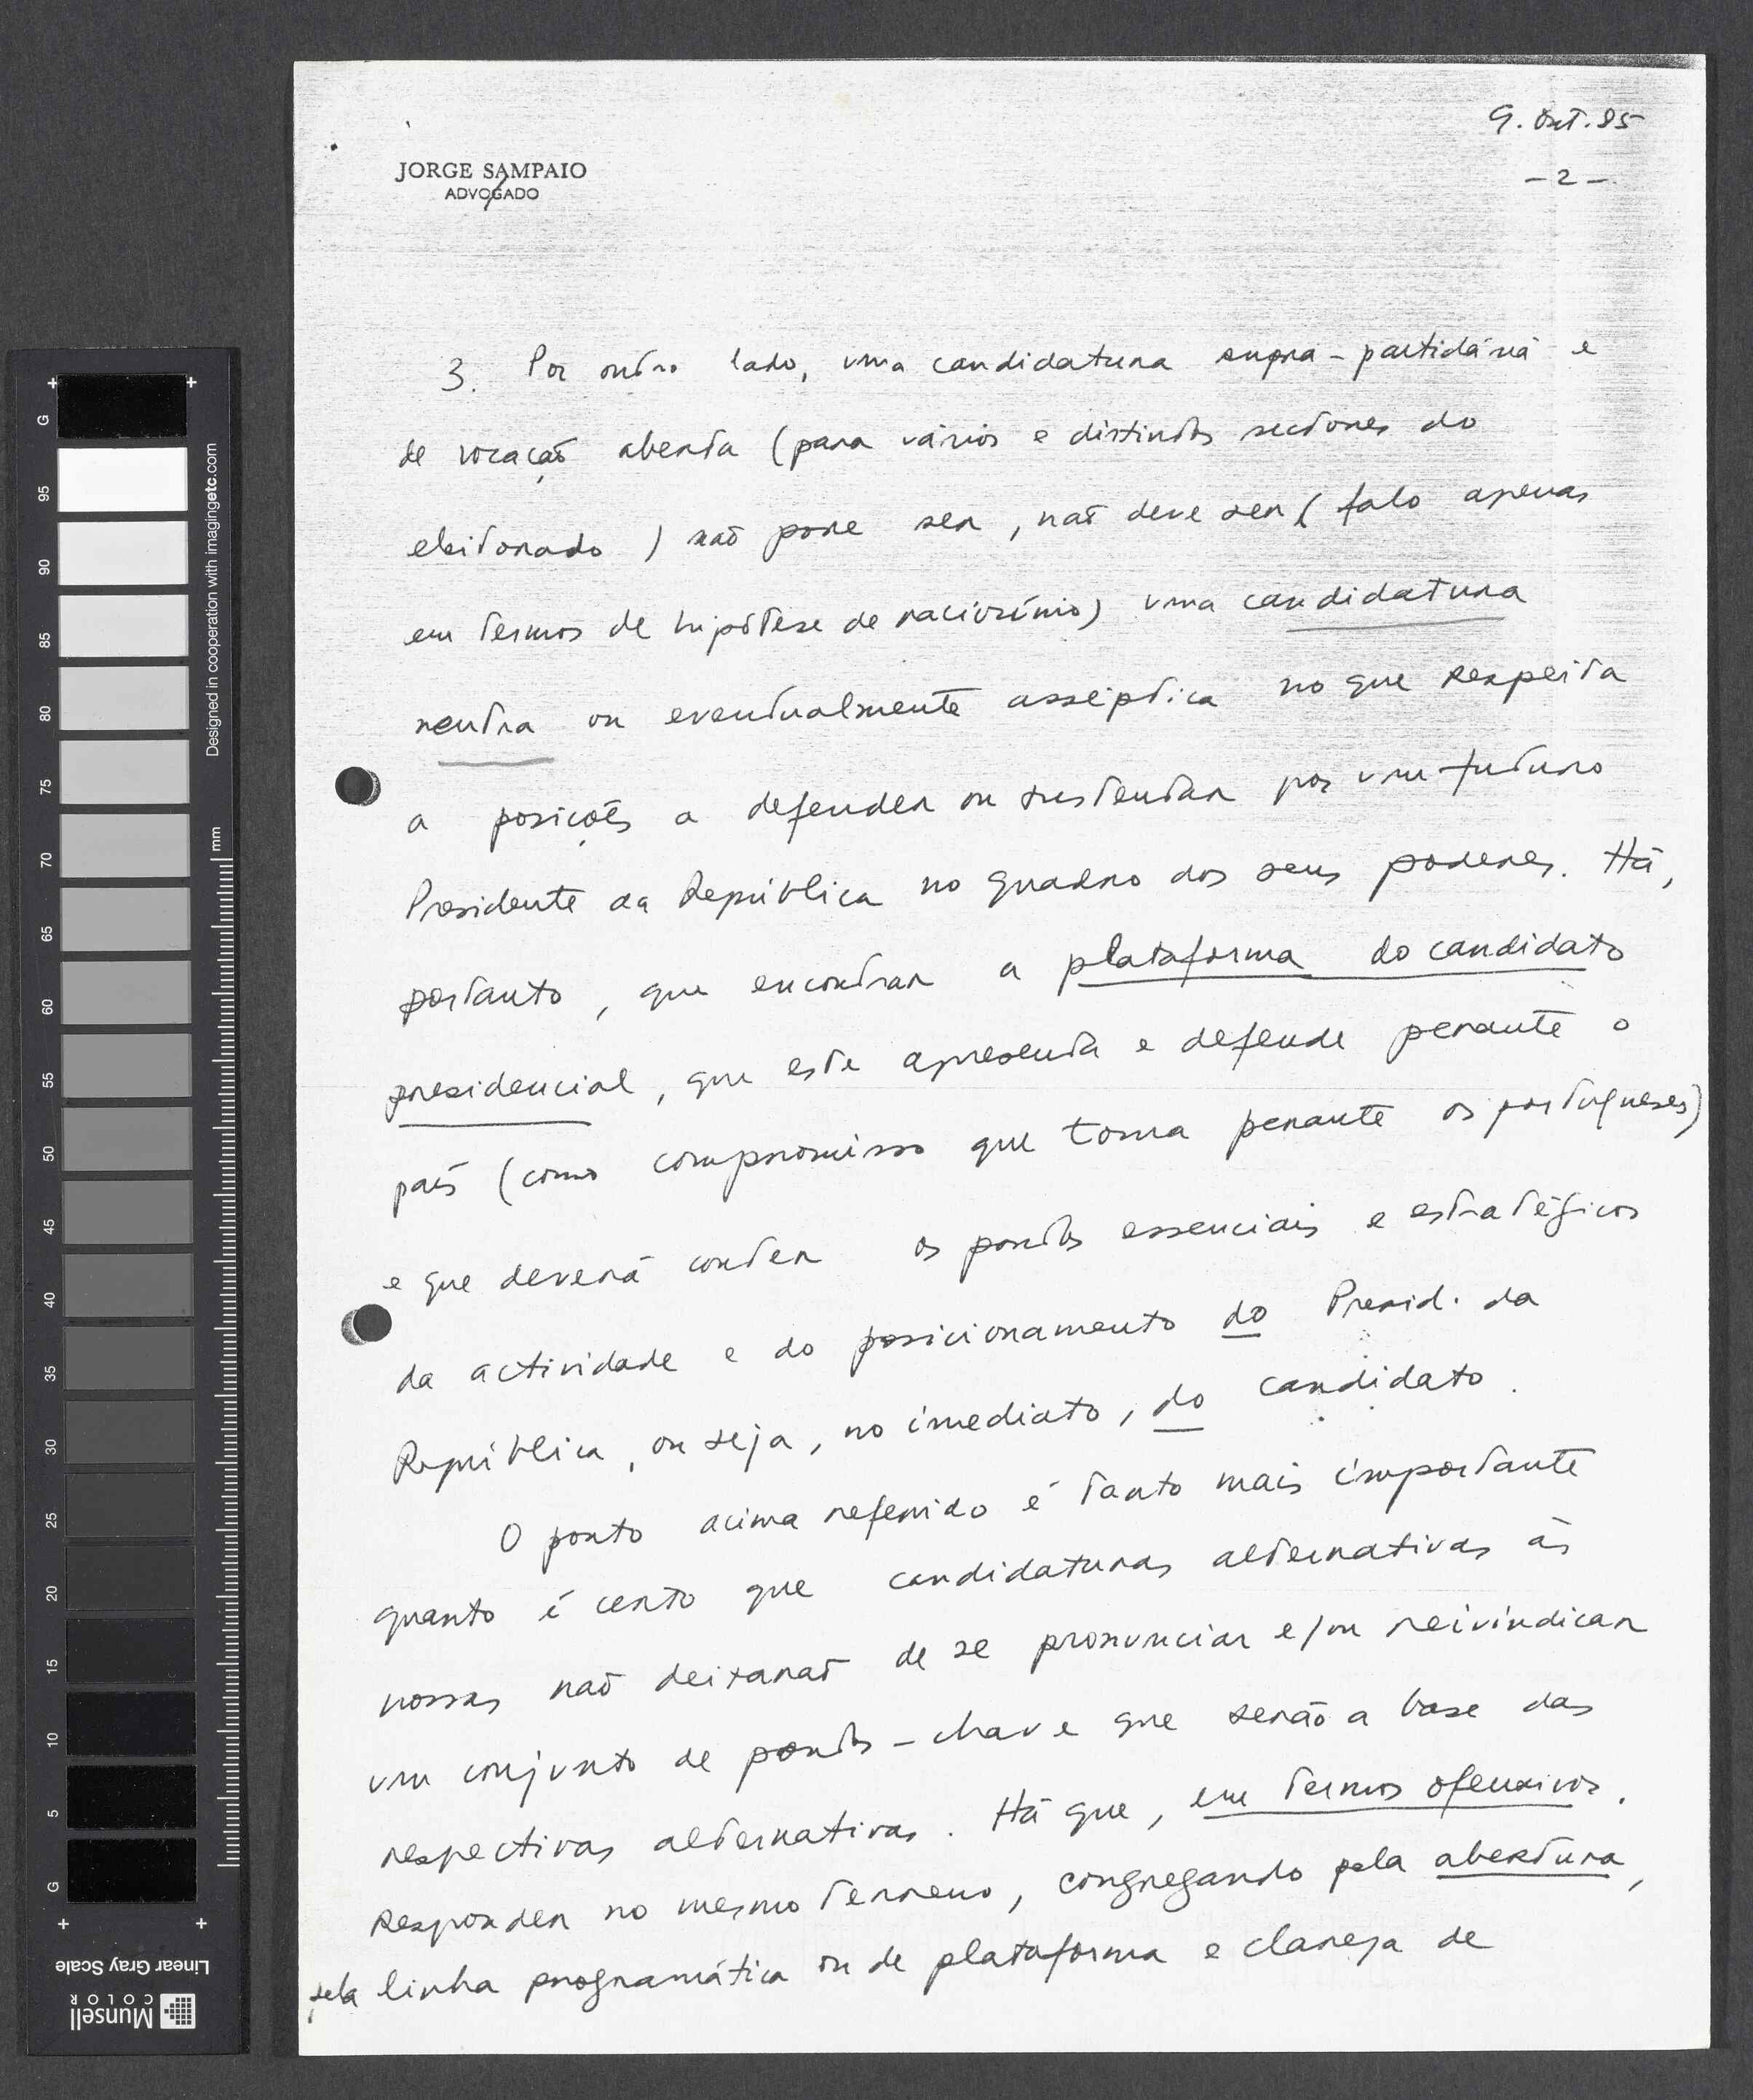 9. Out. 85
JORGE SAMPAIO
ADVOGADO
- 2 -
3. Por outro lado, uma candidatura supra-partidária e
de vocação aberta (para vários e distintos sectores do
eleitorado) não pode ser, não deve ser (falo apenas
em termos de hipótese de raciocínio) uma candidatura
neutra ou eventualmente asséptica no que respeita
a posições a defender ou sustentar por um futuro
Presidente da República no quadro dos seus poderes. Há,
portanto, que encontrar a plataforma do candidato
presidencial, que este apresenta e defende perante o
país (como compromisso que toma perante os portugueses)
e que deverá conter os pontos essenciais e estratégicos
da actividade e do posicionamento do Presid. da
República, ou seja, no imediato, do candidato.
O ponto acima referido é tanto mais importante
quanto é certo que candidaturas alternativas às
nossas não deixarão de se pronunciar e/ou reivindicar
um conjunto de pontos-chave que serão a base das
respectivas alternativas. Há que, em termos ofensivos,
responder no mesmo terreno, congregando pela abertura,
pela linha programática ou de plataforma e clareza de
G
95
90
85
80
75
70
65
60
55
50
45
40
35
30
25
20
15
10
5
G
mm
Designed in cooperation with imagingetc.com
Linear Gray Scale
Munsell
COLOR